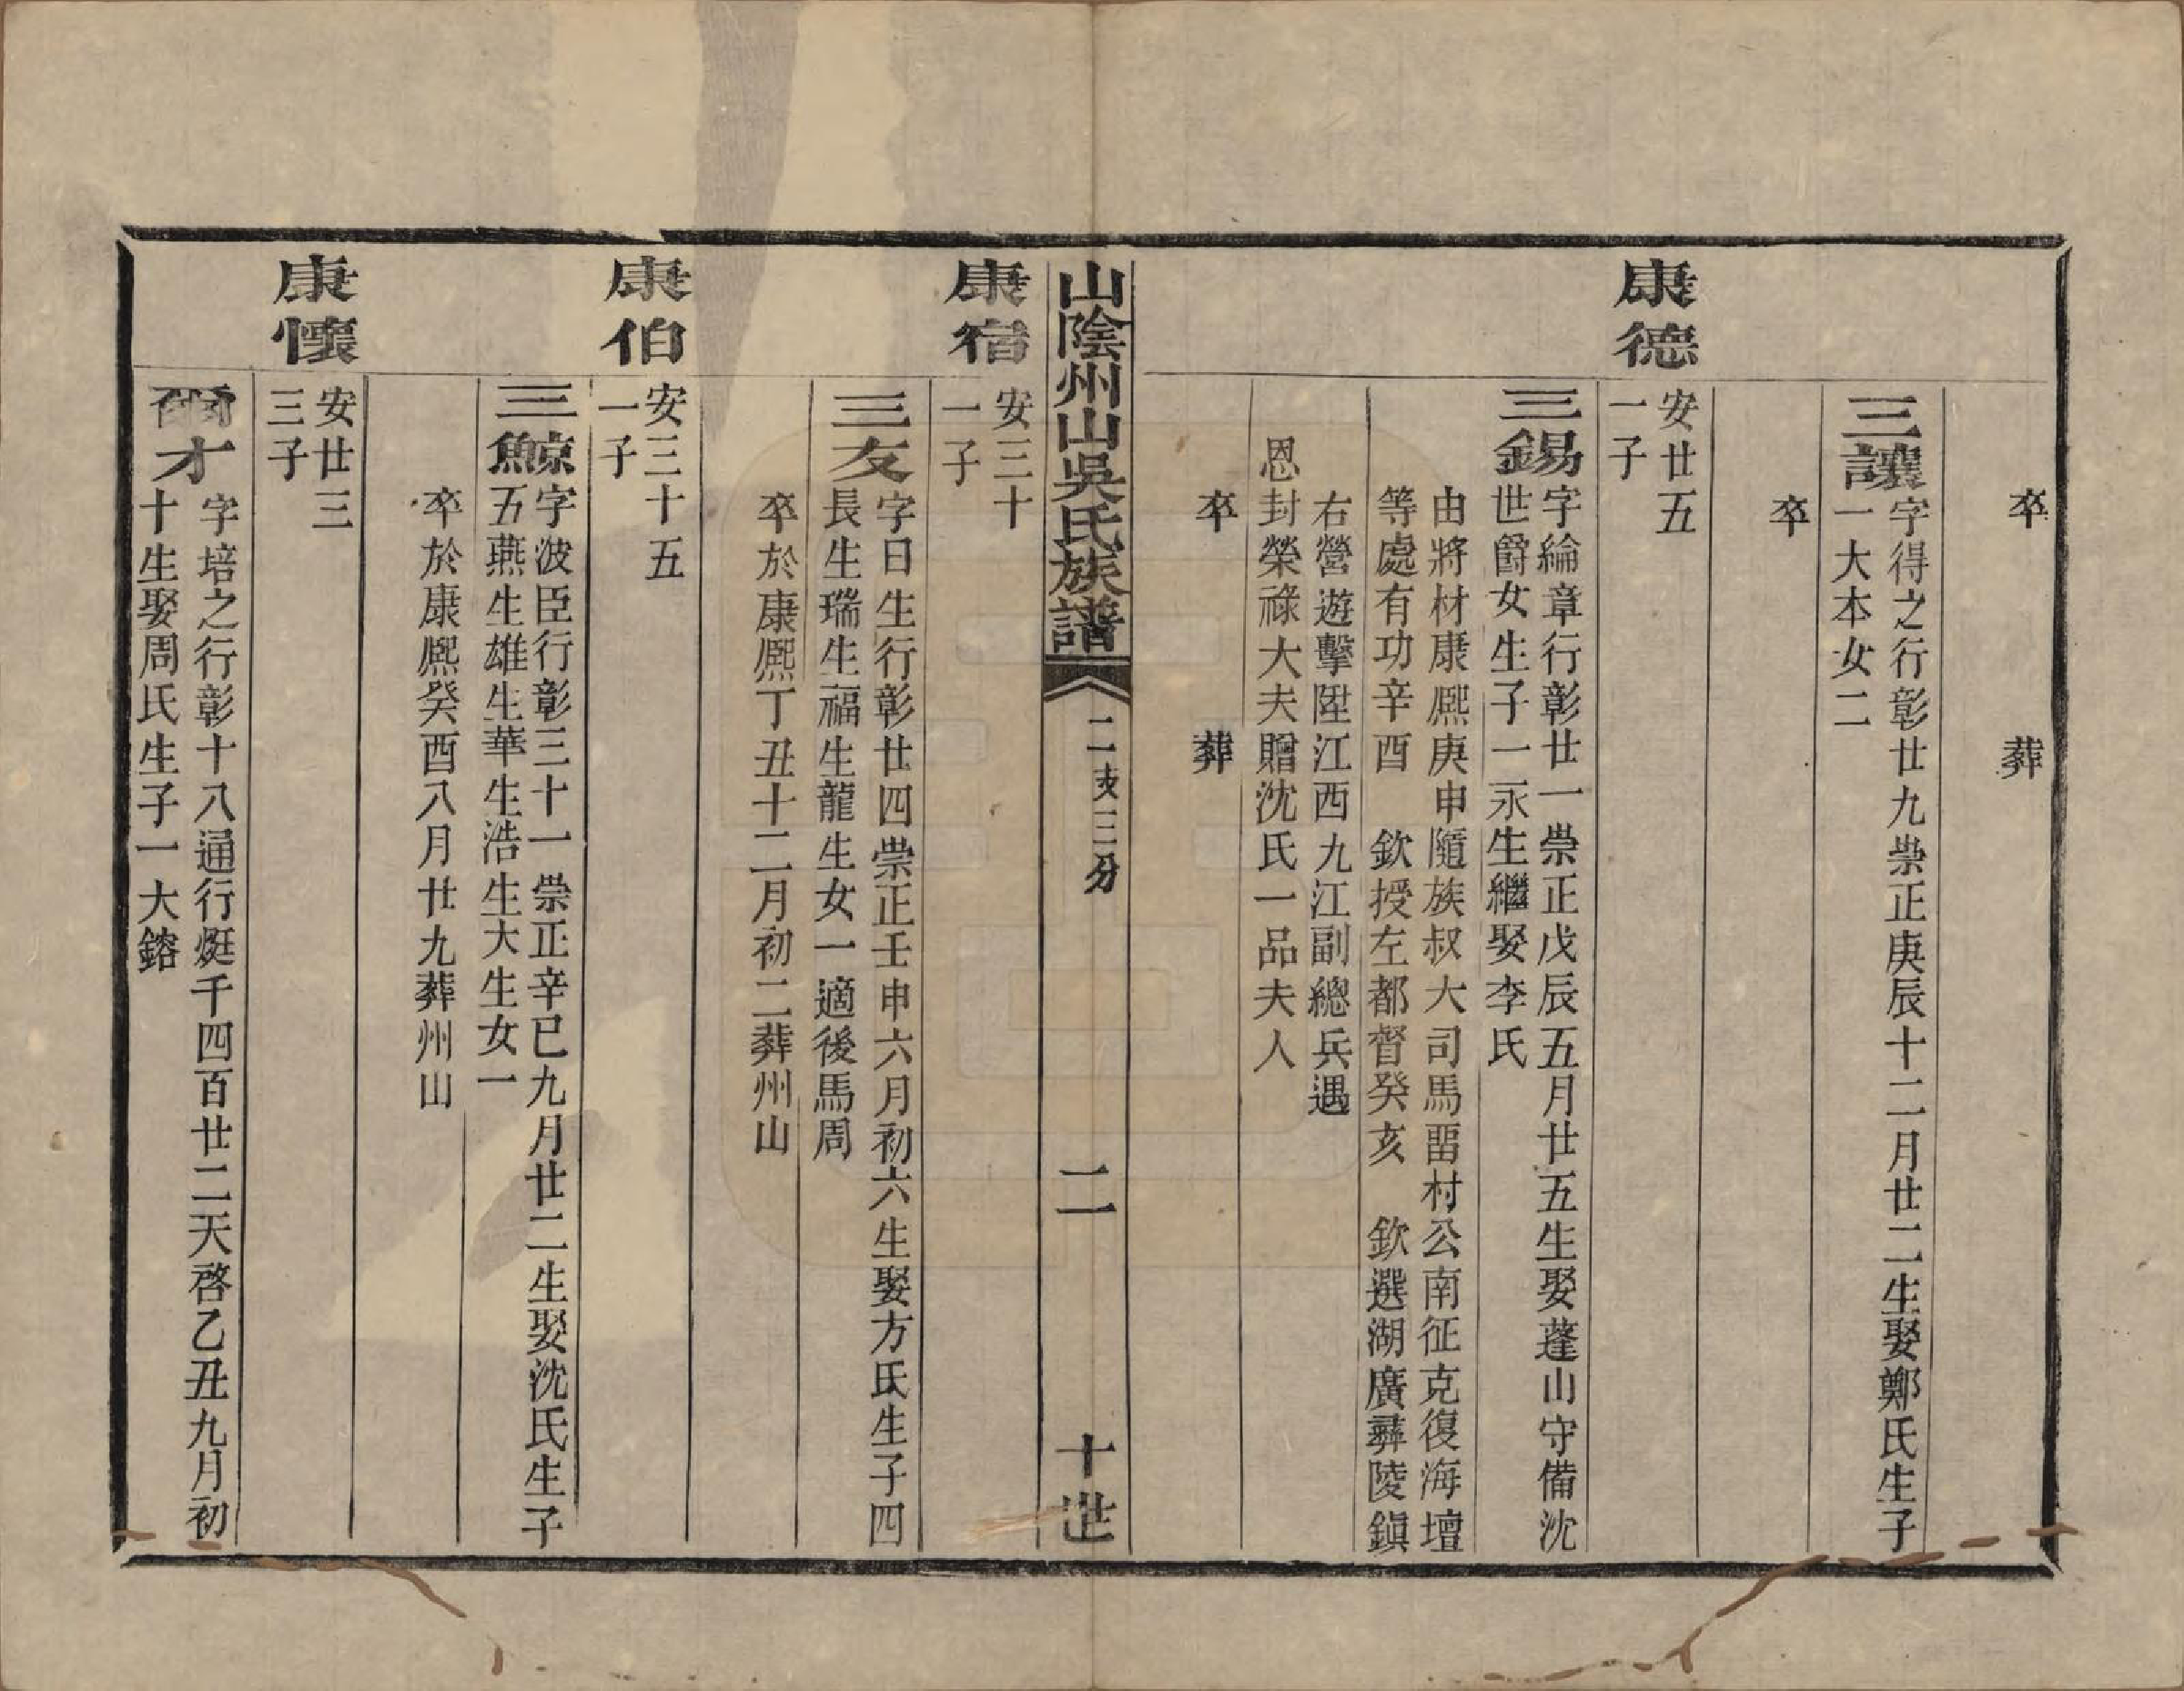 卒　葬
三讓
字得之行彰廿九崇正庚辰十二月廿二生娶鄭氏生子
一大本女二
卒
康德
安廿五
一子
三錫
字綸章行彰廿一崇正戊辰五月廿五生娶蓬山守備沈
世爵女生子一永生繼娶李氏
由將材康熈庚申隨族叔大司馬畱村公南征克復海壇
等處有功辛酉　欽授左都督癸亥　欽選湖廣彝陵鎭
右營遊擊陞江西九江副總兵遇
恩封榮祿大夫贈沈氏一品夫人
卒　葬
山陰州山吳氏族譜
二支三分
二
十世
康宿
安三十
一子
三友
字日生行彰廿四崇正壬申六月初六生娶方氏生子四
長生瑞生福生龍生女一適後馬周
卒於康熈丁丑十二月初二葬州山
康伯
安三十五
一子
三鯨
字波臣行彰三十一崇正辛巳九月廿二生娶沈氏生子
五燕生雄生華生浩生大生女一
卒於康熈癸酉八月廿九葬州山
康懷
安廿三
三子
爾才
字培之行彰十八通行烶千四百廿二天啓乙丑九月初
十生娶周氏生子一大鎔